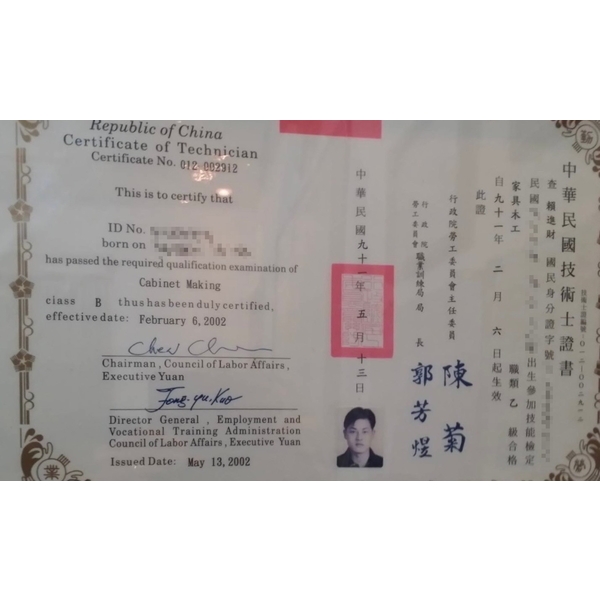 Republic of China
Certificate of Technician
Certificate No. 012-002912
This is to certify that
ID No.
born on
has passed the required qualification examination of
Cabinet Making
class B thus has been duly certified,
effective date: February 6, 2002
Chairman, Council of Labor Affairs,
Executive Yuan
Director General, Employment and
Vocational Training Administration
Council of Labor Affairs, Executive Yuan
Issued Date: May 13, 2002
中華民國技術士證書
技術士證編號:012-002912
查 賴進財 國民身分證字號
民國 出生參加技能檢定
家具木工 職類乙 級合格
自九十一年 二 月 六 日起生效
此證
行政院勞工委員會主任委員 陳菊
行政院勞工委員會 職業訓練局局長 郭芳煜
中華民國九十一年 五 月 十三 日
業